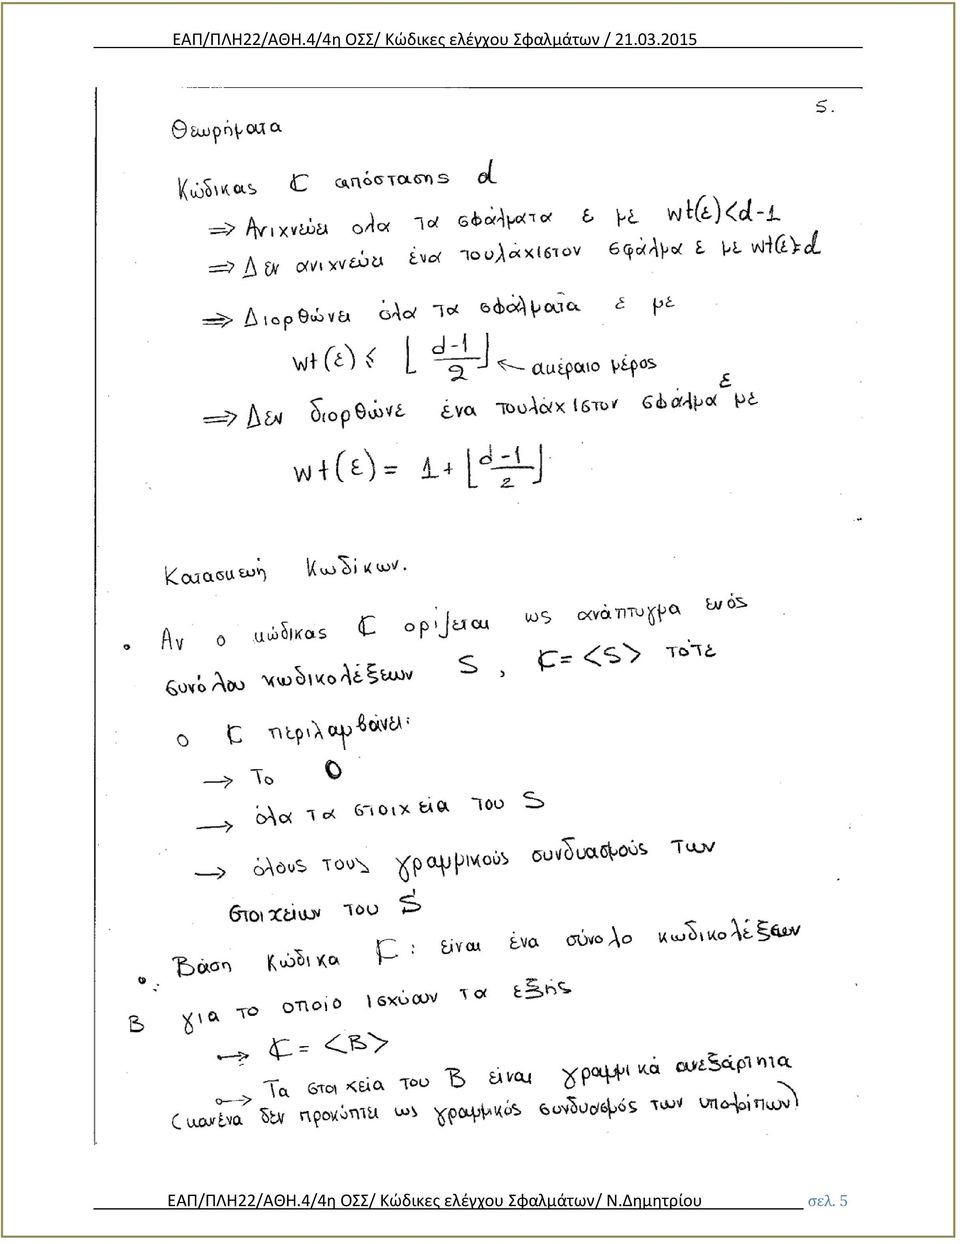 ΕΑΠ/ΠΛΗ22/ΑΘΗ.4/4η ΟΣΣ/ Κώδικες ελέγχου Σφαλμάτων / 21.03.2015
5.
Θεωρήματα
Κώδικας C απόστασης d
=> Ανιχνεύει ολα τα σφάλματα ε με wt(ε)<d-1
=> Δεν ανιχνεύει ένα τουλάχιστον σφάλμα ε με wt(ε)=d
=> Διορθώνει όλα τα σφάλματα ε με
wt(ε) ≤ ⌊ d-1 / 2 ⌋ ← ακέραιο μέρος
=> Δεν διορθώνε ένα τουλάχιστον σφάλμα ε με
wt(ε) = 1 + ⌊ d-1 / 2 ⌋
Κατασκευή Κωδίκων.
• Αν ο κώδικας C ορίζεται ως ανάπτυγμα ενός
συνόλου κωδικολέξεων S, C = <S> τότε
ο C περιλαμβάνει:
→ Το 0
→ όλα τα στοιχεία του S
→ όλους τους γραμμικούς συνδυασμούς των
στοιχείων του S
• Βάση Κώδικα C : είναι ένα σύνολο κωδικολέξεων
B για το οποίο ισχύουν τα εξής
→ C = <B>
→ Τα στοιχεία του B είναι γραμμικά ανεξάρτητα
(κανένα δεν προκύπτει ως γραμμικός συνδυασμός των υπολοίπων)
ΕΑΠ/ΠΛΗ22/ΑΘΗ.4/4η ΟΣΣ/ Κώδικες ελέγχου Σφαλμάτων/ Ν.Δημητρίου σελ. 5